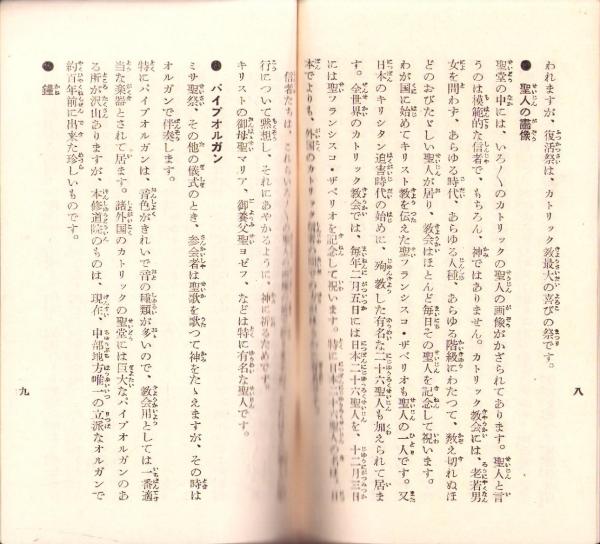 われますが、復活祭は、カトリック教最大の喜びの祭です。
● 聖人の畫像
聖堂の中には、いろ〱のカトリックの聖人の画像がかざられてあります。聖人と言
うのは模範的な信者で、もちろん、神ではありません。カトリック教会には、老若男
女を問わず、あらゆる時代、あらゆる人種、あらゆる階級にわたつて、数え切れぬほ
どのおびたゞしい聖人が居り、教会はほとんど毎日その聖人を記念して祝います。
わが国に始めてキリスト教を伝えた聖フランシスコ・ザベリオも聖人の一人です。又
日本のキリシタン迫害時代の始めに、殉教した有名な二十六聖人も加えられて居ま
す。全世界のカトリック教会では、毎年二月五日には日本二十六聖人を、十二月三日
には聖フランシスコ・ザベリオを記念して祝います。特に日本二十六聖人の名は、日
本でよりも、外国のカトリック
信者たちは、これらいろ〱の聖
行について黙想し、それにあやかるように、神に祈るためです。
キリストの御母聖マリア、御養父聖ヨゼフ、などは特に有名な聖人です。
● パイプオルガン
ミサ聖祭、その他の儀式のとき、参会者は聖歌を歌つて神をたゝえますが、その時は
オルガンで伴奏します。
特にパイプオルガンは、音色がきれいで音の種類が多いので、教会用としては一番適
当な楽器とされて居ます。諸外国のカトリックの聖堂には巨大なパイプオルガンのあ
る所が沢山ありますが、本修道院のものは、現在、中部地方唯一の立派なオルガンで
約百年前に出来た珍しいものです。
● 鐘
八
九